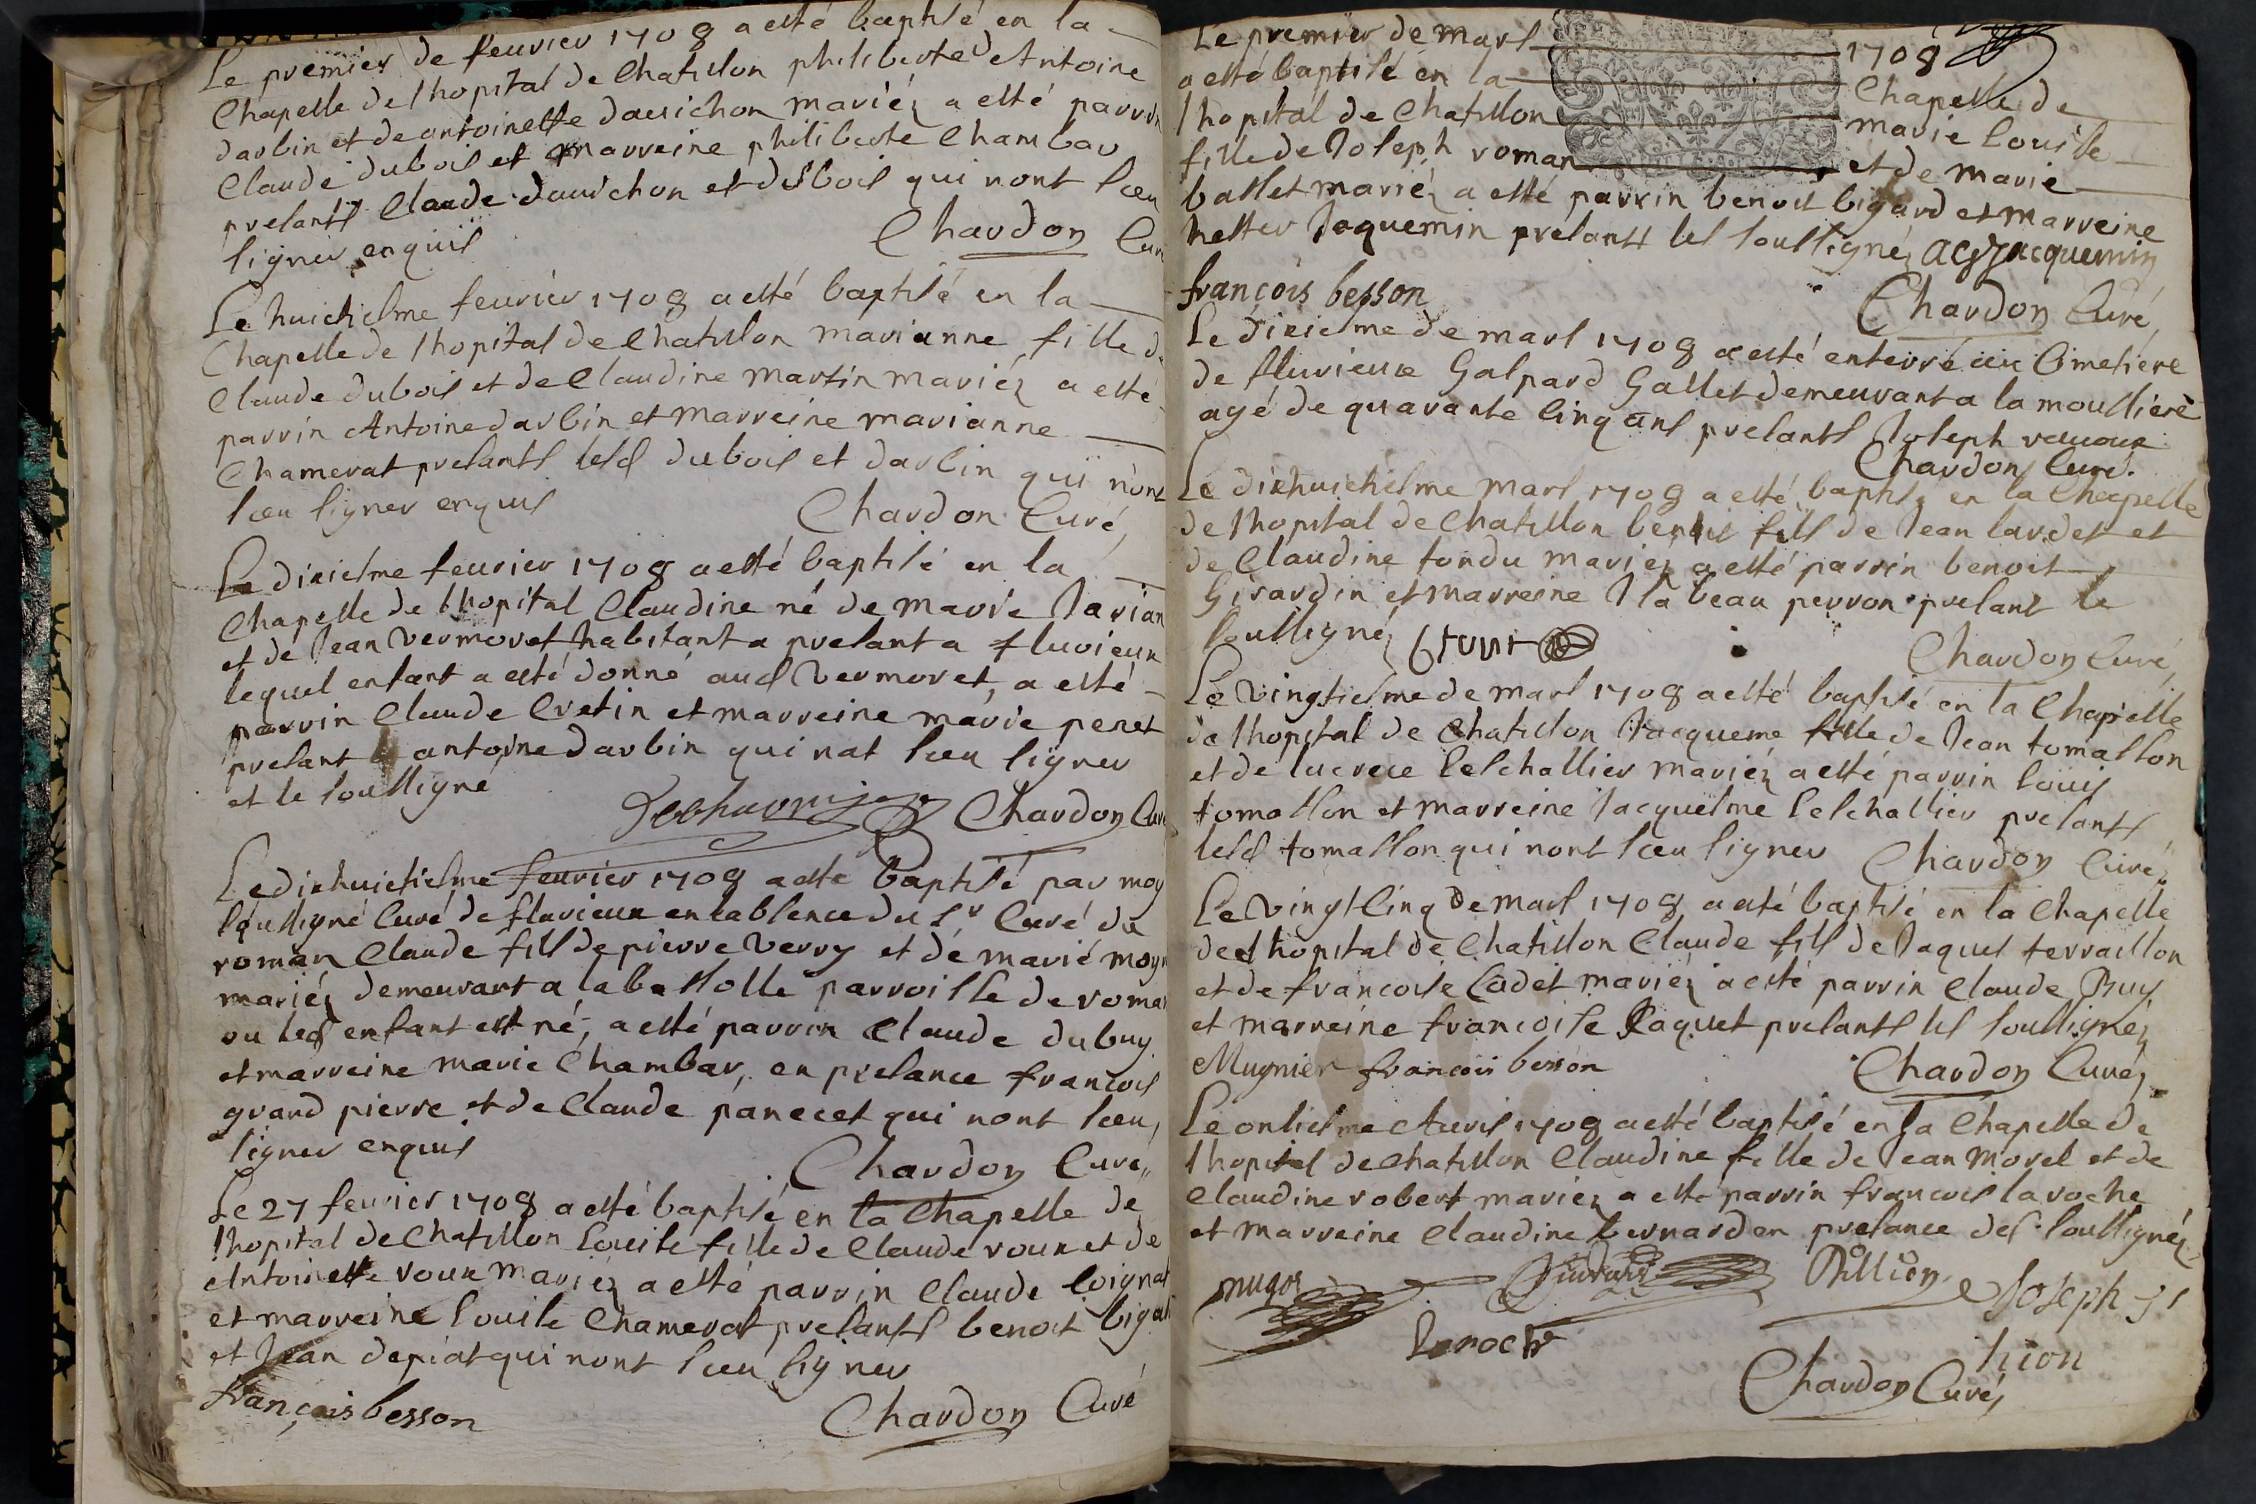 Le premier de feurier 1708 a esté baptisé en la
Chapelle de lhopital de Chatillon philiberte d Antoine
darbin et de antoinette dauichon mariéz a esté parrin
Claude dubois et marreine philiberte Chambar
presants Claude dauichon et dubois qui nont sceu
signer enquis
Chardon Curé
Le huictiesme feurier 1708 a esté baptisé en la
Chapelle de lhopital de Chatillon marianne fille de
Claude dubois et de Claudine martin mariéz a esté
parrin Antoine darbin et marreine marianne
Chamerat presants lesd dubois et darbin qui nont
sceu signer enquis
Chardon Curé
Le dixiesme feurier 1708 a esté baptisé en la
Chapelle de lhopital Claudine né de marie Jarian
et de Jean vermoret habitant a presant a flurieux
lequel enfant a esté donné aud vermoret, a esté
parrin Claude Cretin et marreine marie peret
presant antoine darbin qui nat sceu signer
et le soussigné
Chardon Curé
Le dixhuictiesme feurier 1708 a esté baptisé par moy
soussigné Curé de flurieux en labsence du Sr Curé de
roman Claude fils de pierre verry et de marie moyn
mariéz demeurant a la bassolle parroisse de roman
ou led enfant est né, a esté parrin Claude dubuy
et marreine marie Chambar, en presance francois
grand pierre et de Claude panecet qui nont sceu
signer enquis
Chardon Curé
Le 27 feurier 1708 a esté baptisé en la Chapelle de
lhopital de Chatillon Louise fille de Claude roux et de
Antoinette roux mariéz a esté parrin Claude Coignat
et marreine Louise Chamerat presants benoit bigat
et Jean depiat qui nont sceu signer
françois besson
Chardon Curé
Le premier de mars 1708
a esté baptisé en la Chapelle de
lhopital de Chatillon marie Louise
fille de Joseph roman et de marie
ballet mariéz a esté parrin benoit bigard et marreine
hester Jaquemin presants les soussignéz Jacquemin
françois besson
Chardon Curé
Le dixiesme de mars 1708 a esté enterré au Cimetiere
de flurieux Gaspard Gallet demeurant a la moussiere
agé de quarante cinq ans presants Joseph rauoux
Chardon Curé
Le dixhuictiesme mars 1708 a esté baptisé en la Chapelle
de lhopital de Chatillon benoit fils de Jean lardet et
de Claudine tondu mariéz a esté parrin benoit
Girardin et marreine Isabeau perron presant le
soussigné
Chardon Curé
Le vingtiesme de mars 1708 a esté baptisé en la Chapelle
de lhopital de Chatillon Jacqueme fille de Jean tomasson
et de lucrece leschallier mariéz a esté parrin louis
tomasson et marreine Jacquesme leschallier presants
lesd tomasson qui nont sceu signer
Chardon Curé
Le vingt cinq de mars 1708 a esté baptisé en la Chapelle
de lhopital de Chatillon Claude fils de Jaques terraillon
et de francoise Cadet mariéz a esté parrin Claude Buy
et marreine francoise Jaquet presants les soussignéz
Mugnier françois besson
Chardon Curé
Le onsiesme Auril 1708 a esté baptisé en la Chapelle de
lhopital de Chatillon Claudine fille de Jean morel et de
Claudine robert mariéz a esté parrin francois laroche
et marreine Claudine bernard en presance des soussignéz
Billion Joseph
Laroche
Chardon Curé